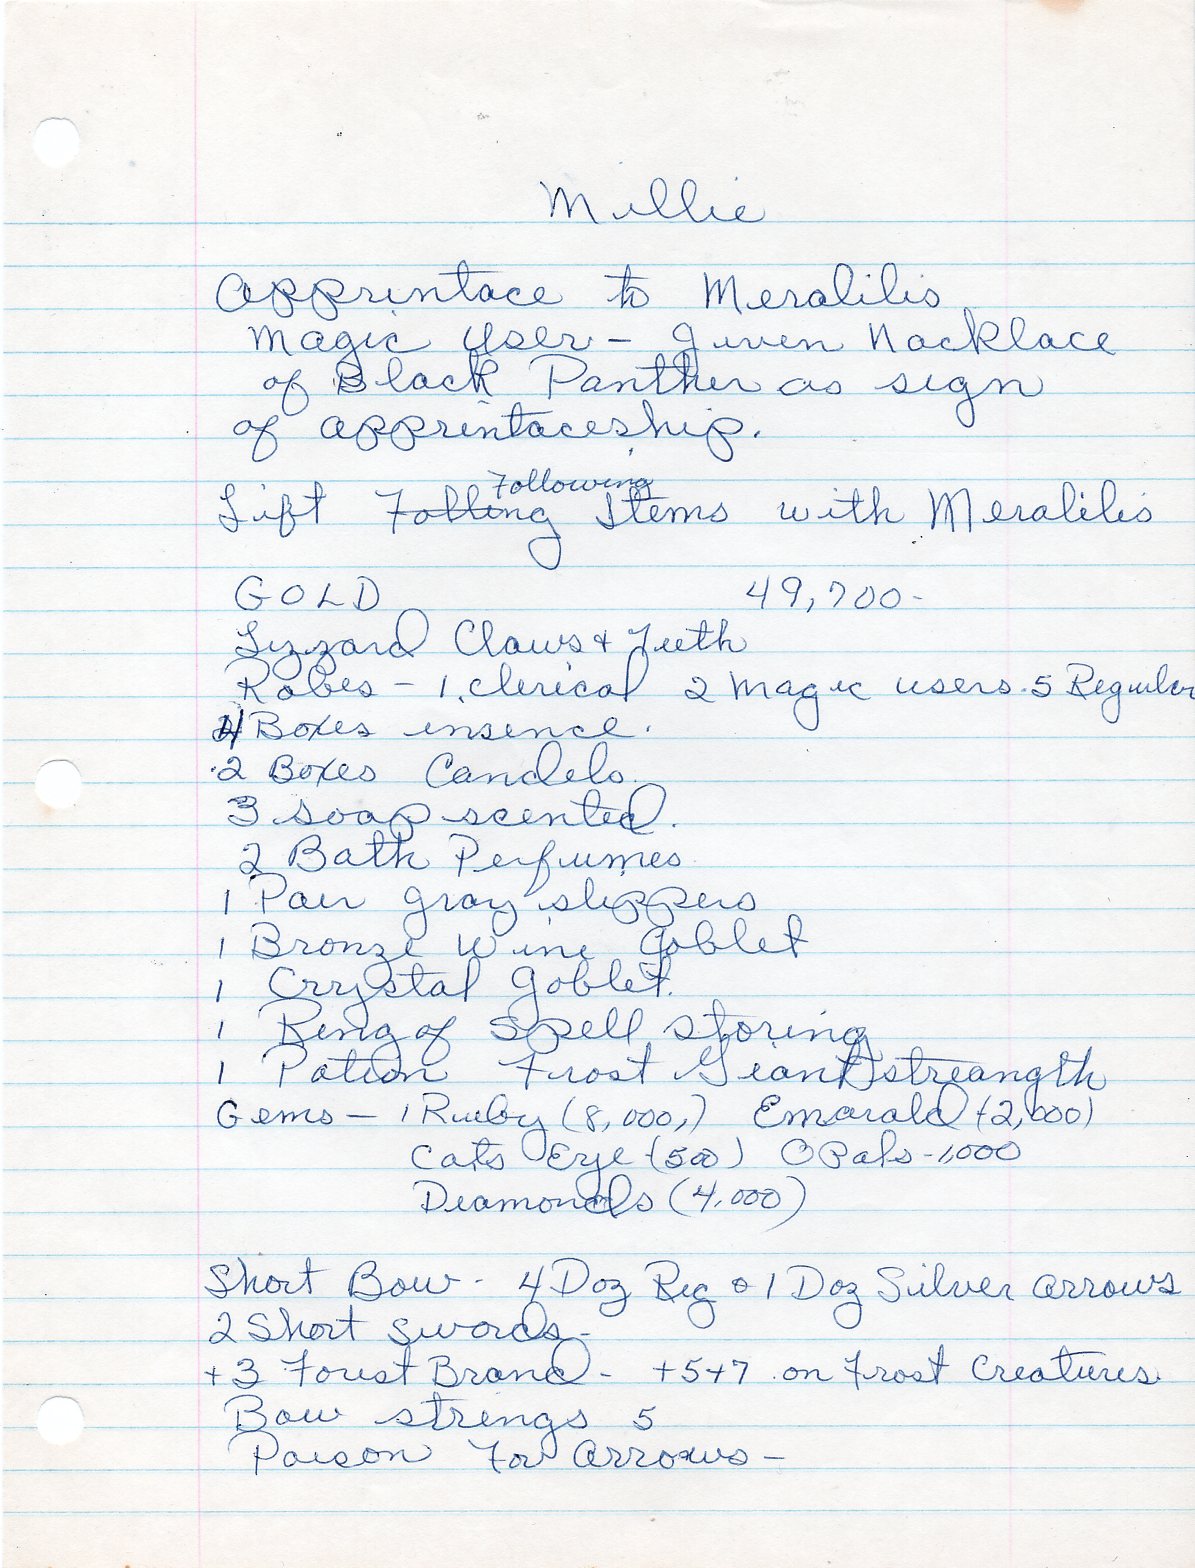 Millie
Apprintace to Meralilis
Magic User - given Nacklace
of Black Panther as sign
of apprintaceship.
Following
Lift Folling Items with Meralilis
GOLD 49,700-
Lizzard Claws + Teeth
Robes - 1 clerical 2 Magic users 5 Regular
4 Boxes insence.
2 Boxes Candels
3 soap scented.
2 Bath Perfumes
1 Pair gray slippers
1 Bronze Wine Goblet
1 Crystal goblet.
1 Ring of Spell storing
1 Potion Frost Giant streangth
Gems - 1 Ruby (8,000,) Emarald (2,000)
Cats Eye (500) OPals - 1,000
Diamonds (4,000)
Short Bow - 4 Doz Reg & 1 Doz Silver arrows
2 Short swords -
+3 Forst Brand - +5+7 on Frost Creatures
Bow strings 5
Poison For arrows -